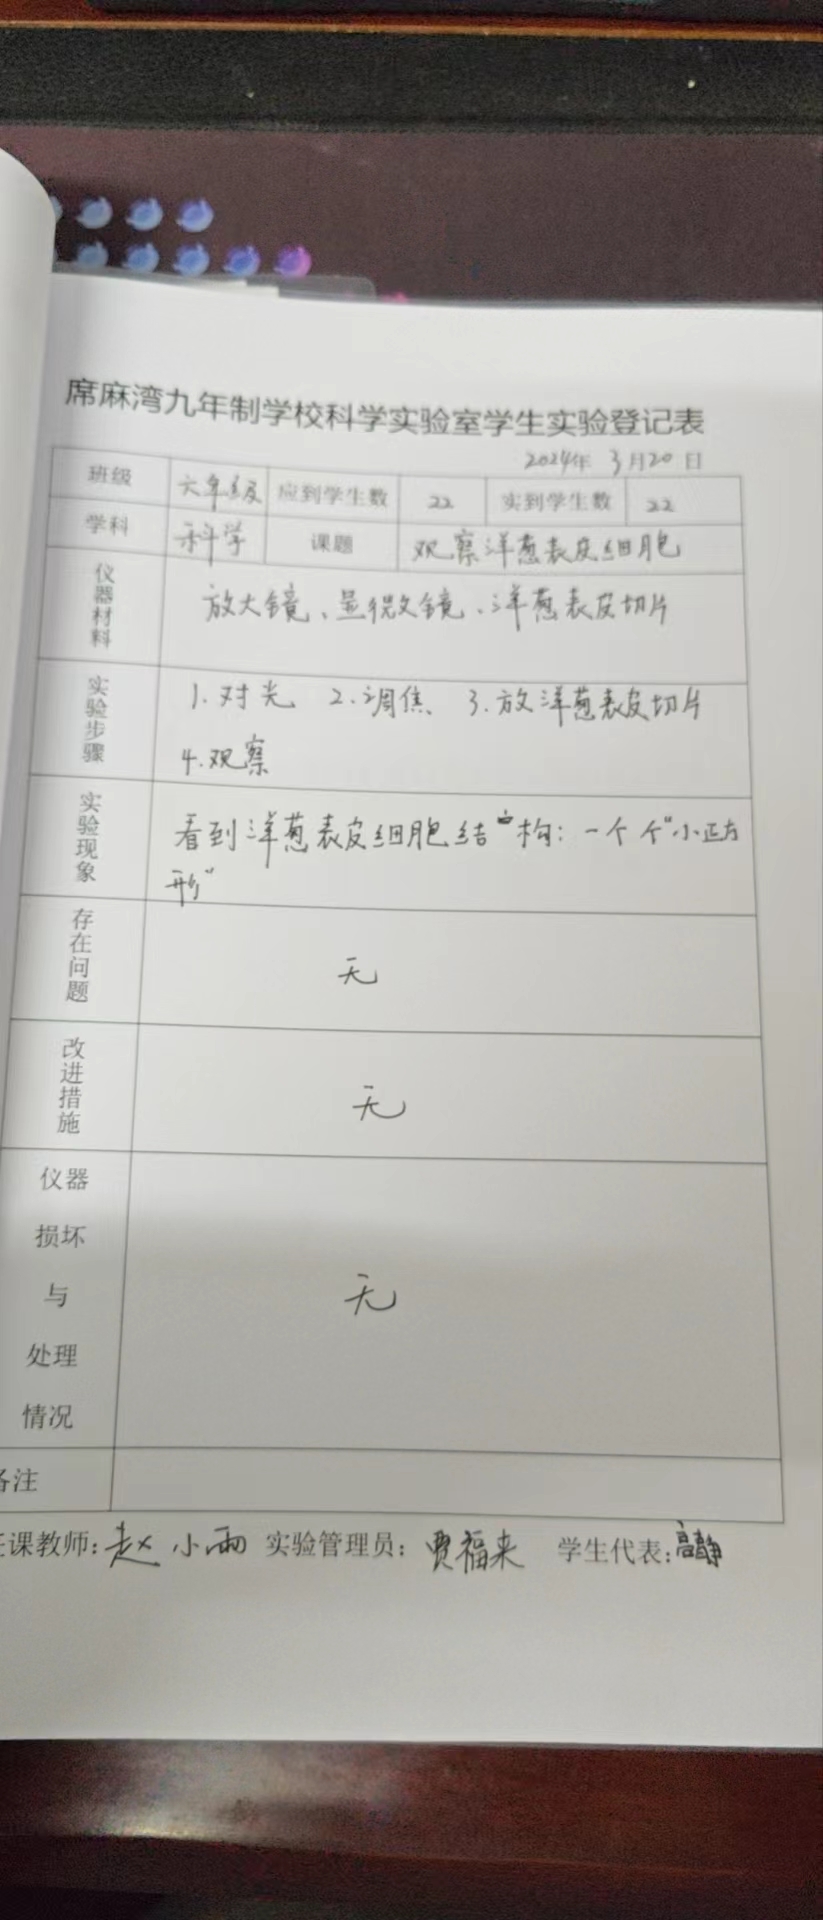 席麻湾九年制学校科学实验室学生实验登记表
2024年 3月20日
班级 六年级 应到学生数 22 实到学生数 22
学科 科学 课题 观察洋葱表皮细胞
仪器材料 放大镜、显微镜、洋葱表皮切片
实验步骤 1.对光 2.调焦 3.放洋葱表皮切片
4.观察
实验现象 看到洋葱表皮细胞结构:一个个"小正方
形"
存在问题 无
改进措施 无
仪器
损坏
与 无
处理
情况
备注
任课教师:赵小雨 实验管理员:贾福来 学生代表:高静